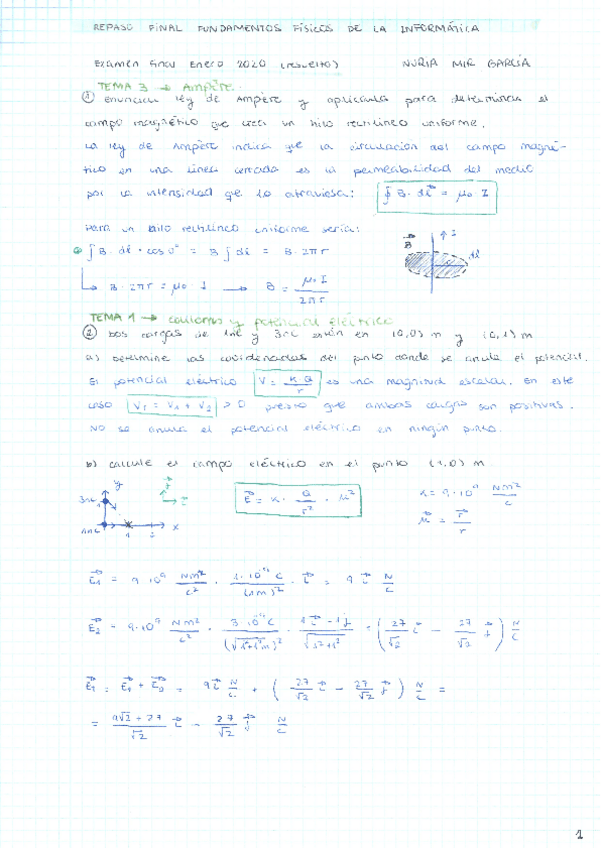 REPASO FINAL FUNDAMENTOS FÍSICOS DE LA INFORMÁTICA
Examen final Enero 2020 (resuelto) NURIA MIR GARCÍA
TEMA 3 → Ampère.
① enunciar ley de Ampère y aplicarla para determinar el
campo magnético que crea un hilo rectilíneo uniforme.
La ley de Ampère indica que la circulación del campo magné-
tico en una línea cerrada es la permeabilidad del medio
por la intensidad que lo atraviesa: ∮ B · dl = μ₀ I
Para un hilo rectilíneo uniforme sería:
∫ B · dl · cos 0° = B ∫ dl = B · 2πr
B · 2πr = μ₀ I → B = μ₀ I / 2πr
B I dl
TEMA 1 → coulomb y potencial eléctrico
② Dos cargas de 1nC y 3nC están en (0,0) m y (0,1) m
a) Determine las coordenadas del punto donde se anula el potencial.
El potencial eléctrico V = K Q / r es una magnitud escalar. En este
caso V_T = V₁ + V₂ > 0 puesto que ambas cargas son positivas.
No se anula el potencial eléctrico en ningún punto.
b) calcule el campo eléctrico en el punto (1,0) m
y 3nC 1nC 1 2 x
E = K · Q / r² · μ
K = 9·10⁹ Nm² / C
μ = r / r
E₁ = 9·10⁹ Nm²/C² · 1·10⁻⁹ C / (1m)² · i = 9 i N/C
E₂ = 9·10⁹ Nm²/C² · 3·10⁻⁹ C / (√1²+1² m)² · 1i - 1j / √1²+1² = (27/√2 i - 27/√2 j) N/C
E_T = E₁ + E₂ = 9i N/C + (27/√2 i - 27/√2 j) N/C =
= 9√2 + 27 / √2 i - 27/√2 j N/C
1